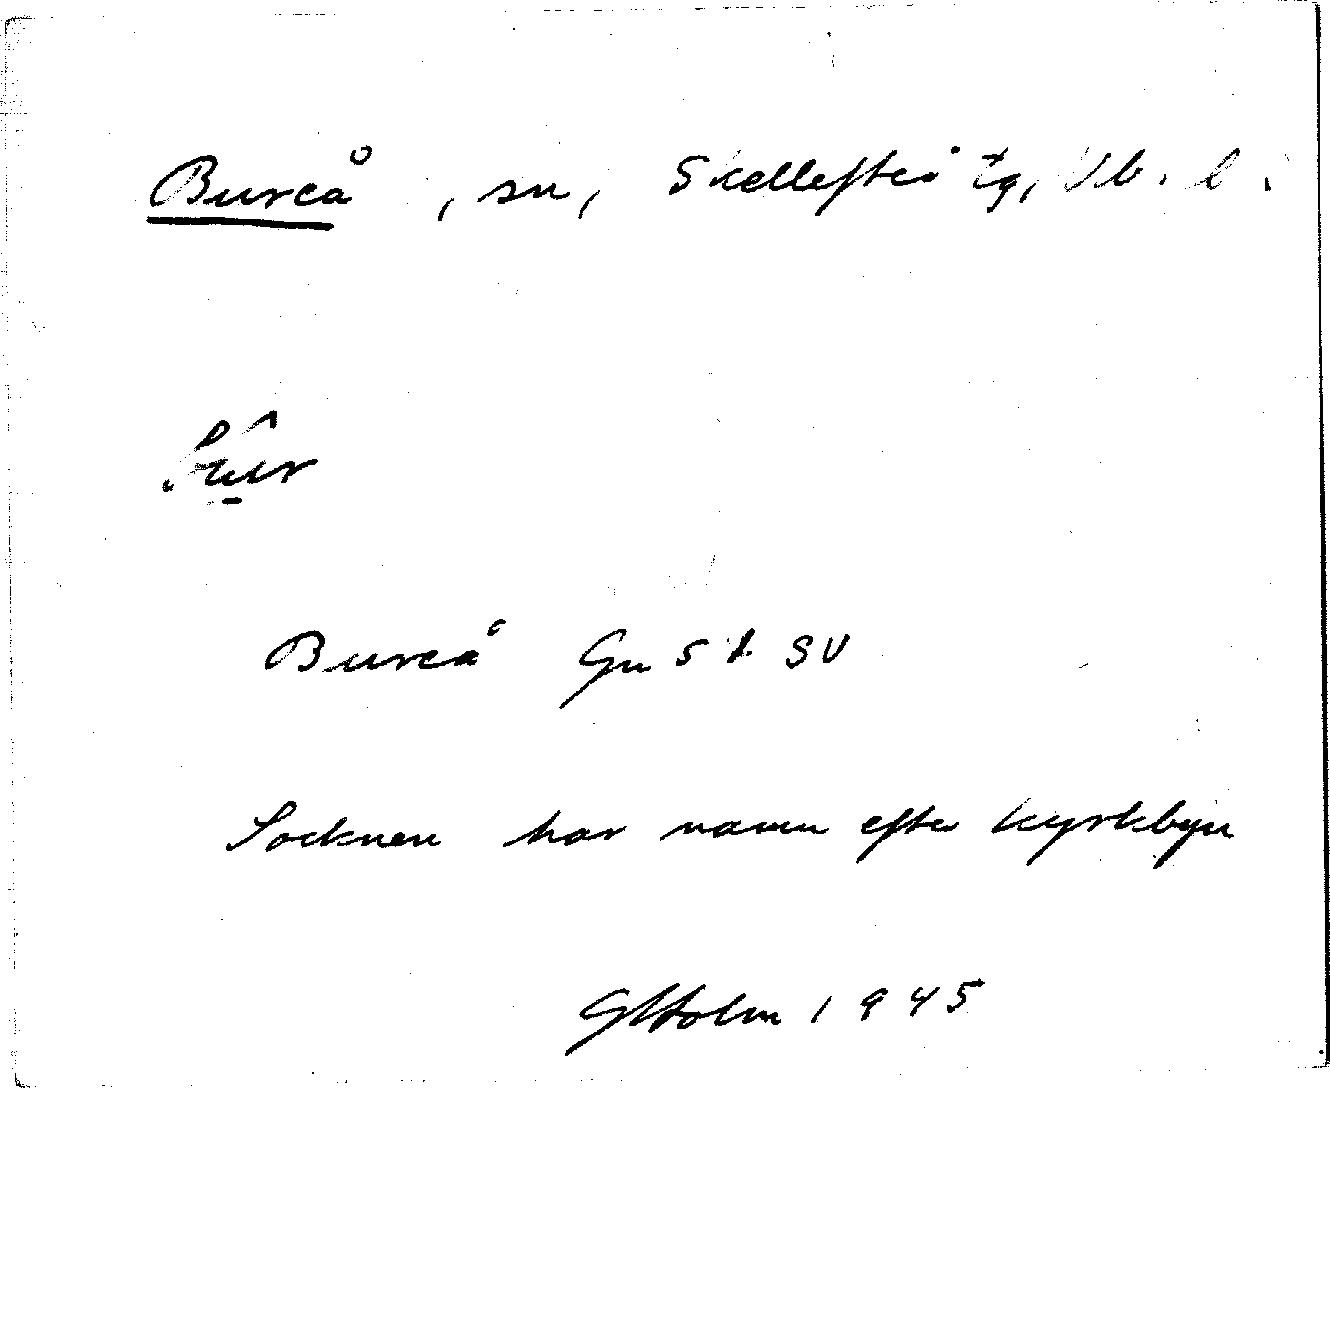 Bureå, sn, Skellefteå tg, Vb. l.
Bureå Gn St SV
Socknen har namn efter kyrkbyn
GHolm 1945